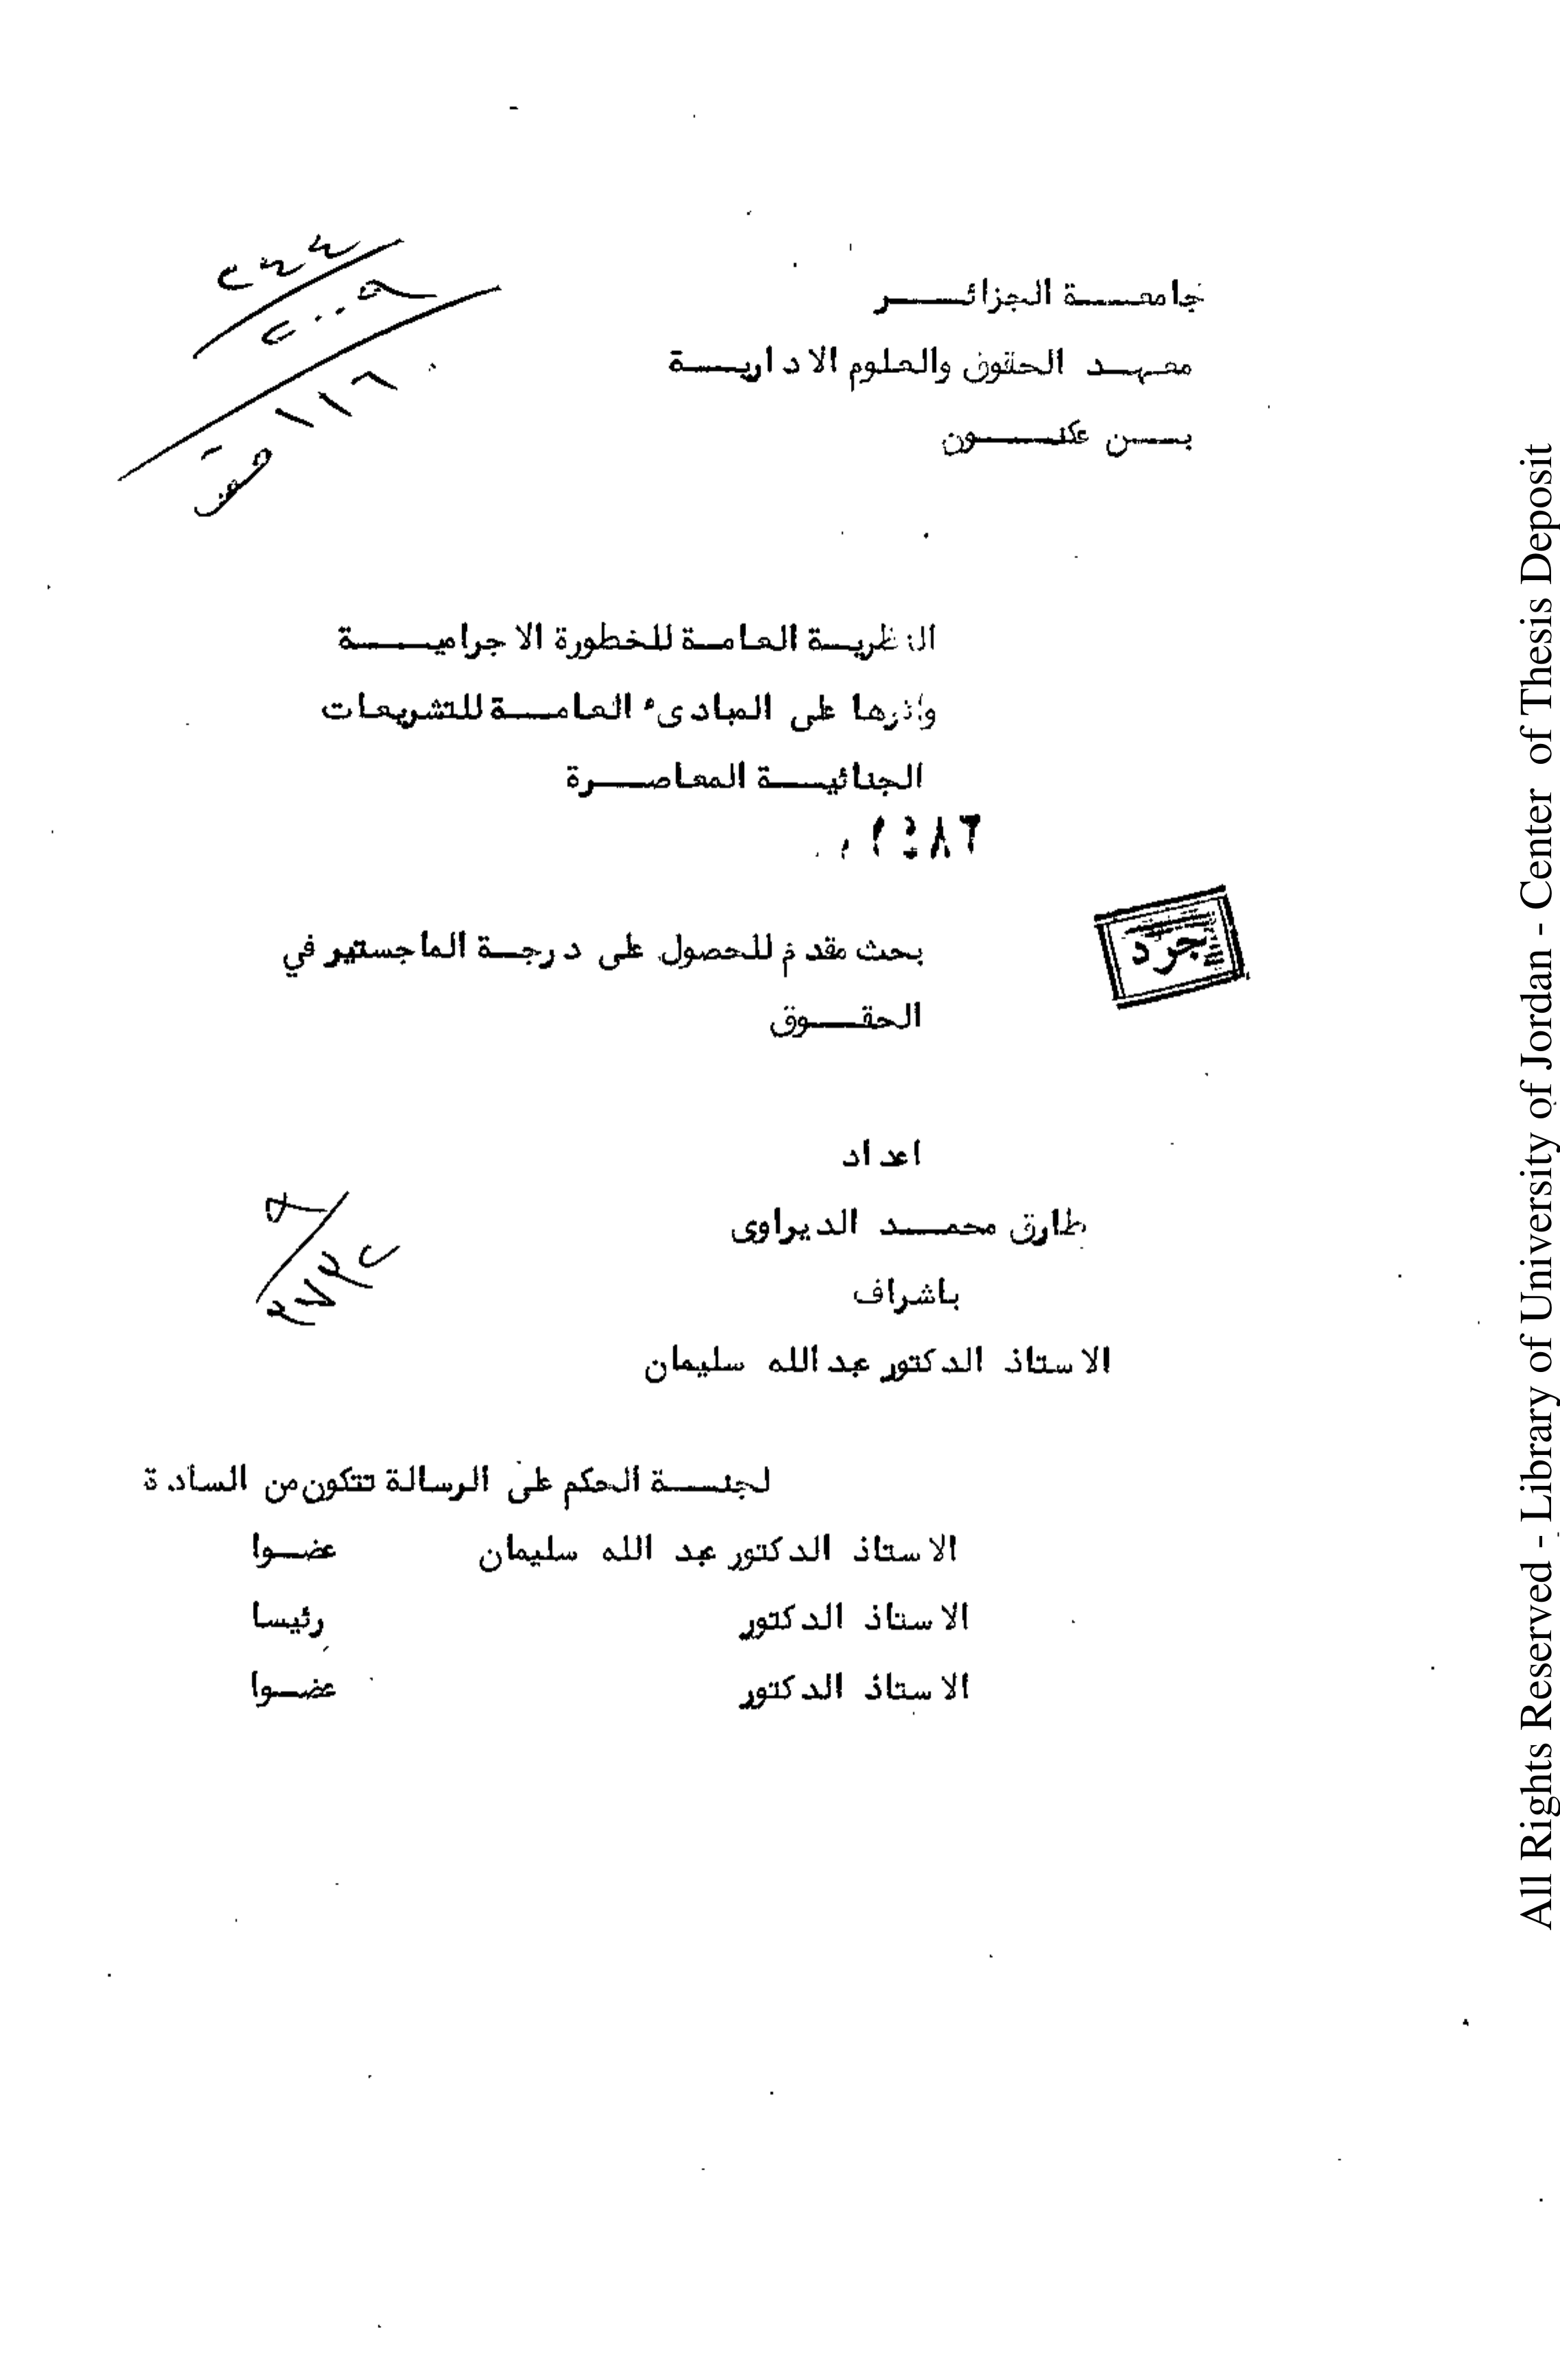 جامعة الجزائر
معهد الحقوق والعلوم الادارية
بن عكنون
النظرية العامة للخطورة الاجرامية
واثرها على المبادىء العامة للتشريعات
الجنائية المعاصرة
جرد
بحث مقدم للحصول على درجة الماجستير في
الحقوق
اعداد
طارق محمد الديراوى
باشراف
الاستاذ الدكتور عبدالله سليمان
لجنة الحكم على الرسالة تتكون من السادة
الاستاذ الدكتور عبد الله سليمان عضوا
الاستاذ الدكتور رئيسا
الاستاذ الدكتور عضوا
All Rights Reserved - Library of University of Jordan - Center of Thesis Deposit